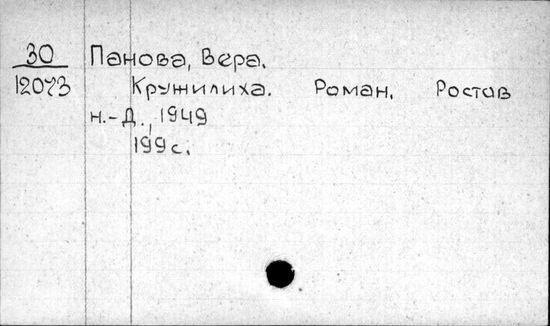 30 Панова, Вера.
12073 Кружилиха. Роман. Ростов
н.-Д., 1949
199 с.